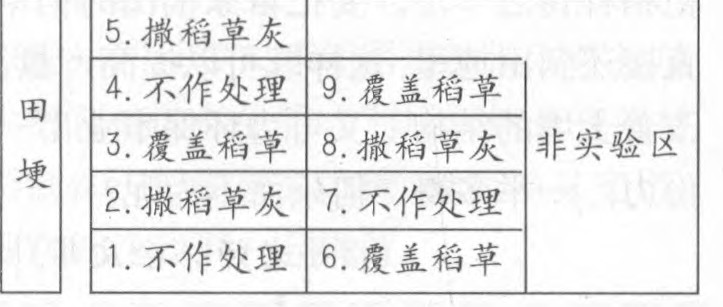 田埂
5.撒稻草灰
4.不作处理 9.覆盖稻草
3.覆盖稻草 8.撒稻草灰 非实验区
2.撒稻草灰 7.不作处理
1.不作处理 6.覆盖稻草